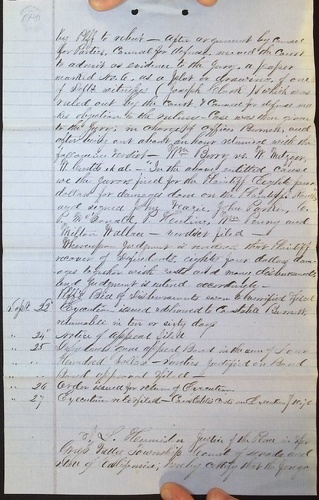 by Plff to rebut — After argument by Counsel
for Parties, Counsel for defense moved the Court
to admit as evidence to the Jury, a paper
marked Note, as a plot or drawing of one
of Defts witnesses (Joseph Clark) which was
ruled out by the Court & Counsel for defense makes
objection to the ruling — Case was then given
to the Jury, in charge of officer Burnett, and
after being out about an hour returned with the
following verdict — Wm Berry vs. W. Metzger,
W. Curtis et al — In the above entitled cause
we the Jurors find for the Plaintiff Eighty four
dollars for damages done on the
and signed Jno Hague, John Parker, C.
P. McDonald, P. Wm Young and
Milton Wallace — verdict filed —
Whereupon Judgment is rendered that Plaintiff
recover of Defendants eighty four dollars dam-
ages together with costs and disbursements
and Judgment is entered accordingly —
Plffs Bill of Disbursements sworn to and filed
Sept 22 Execution issued & delivered to Burnett
returnable in ten or sixty days
" 24 Notice of appeal filed
" 25 Defendants appeal Bond in the sum of Four
Hundred Dollars — Sureties Justified on Bond
Bond approved & filed —
" 26 Order issued for return of Execution
" 27 Execution returned filed — Constables Costs on Execution
I, L. Justice of the Peace in & for
Grass Valley Township County of Nevada and
State of California, hereby certify that the foregoing